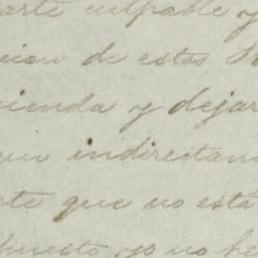 arte culpable y
cion de estos
cienda y dejar
que indirectam
rte que no está
puesto yo no he